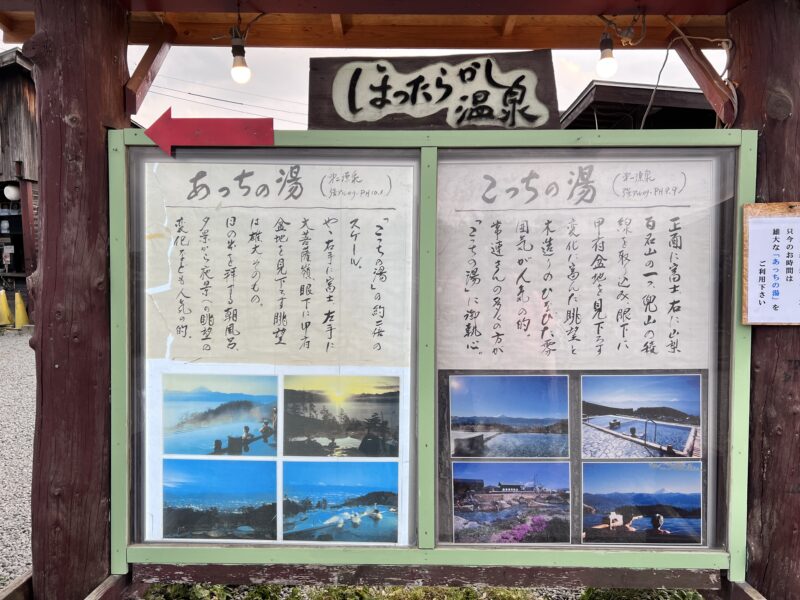 ほったらかし温泉
あっちの湯
(第二源泉
強アルカリ. PH10.1)
「こっちの湯」の約二倍の
スケール。
やゝ右手に富士 左手に
大菩薩嶺 眼下に甲府
盆地を見下ろす眺望
は雄大そのもの。
日の出を拝する朝風呂
夕景から夜景への眺望の
変化なども人気の的。
こっちの湯
(第一源泉
強アルカリ. PH9.9)
正面に富士 右に山梨
百名山の一つ 兜山の稜
線を取り込み、眼下に
甲府盆地を見下ろす
変化に富んだ眺望と
木造りのひなびた雰
囲気が人気の的。
常連さんの多くの方が
「こっちの湯」に御執心。
只今のお時間は
雄大な「あっちの湯」を
ご利用下さい